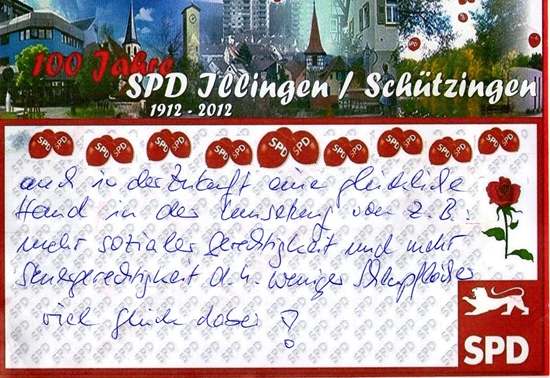 100 Jahre
SPD Illingen / Schützingen
1912 - 2012
SPD SPD SPD SPD SPD SPD SPD SPD SPD SPD
auch in der Zukunft eine glückliche
Hand in der Umsetzung von z.B.
mehr sozialer Gerechtigkeit und mehr
Steuergerechtigkeit d.h. weniger Schlupflöcher
viel Glück dabei !
SPD